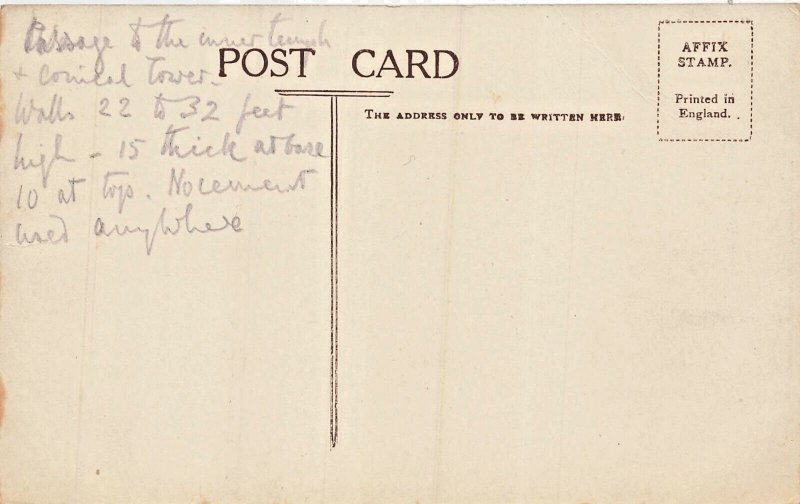 Passage to the inner temple
+ Conical Tower -
Walls 22 to 32 feet
high - 15 thick at base
10 at top. No cement
used anywhere
POST CARD
THE ADDRESS ONLY TO BE WRITTEN HERE.
AFFIX
STAMP.
Printed in
England.